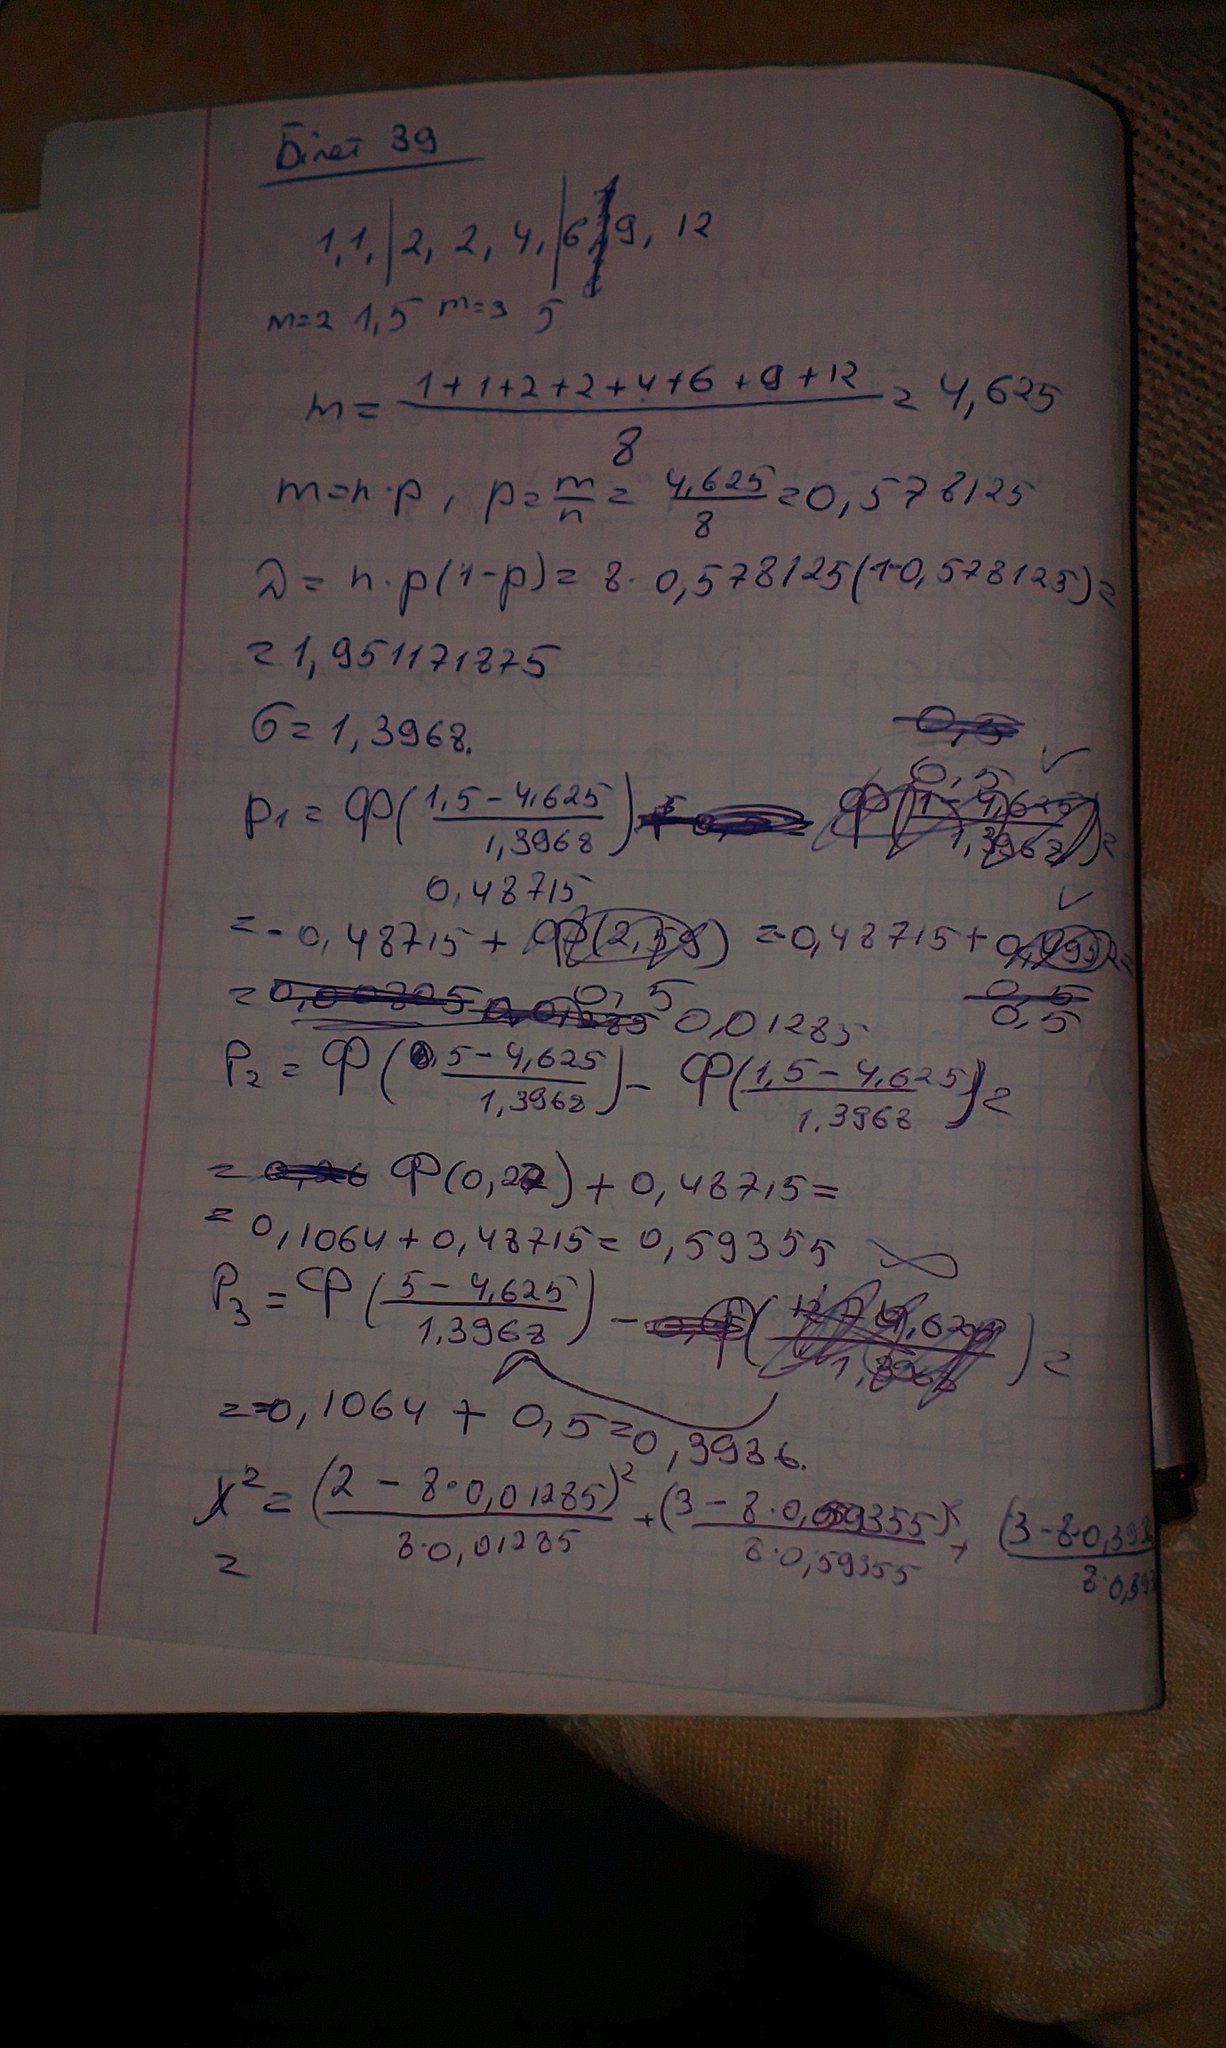 Білет 39
1, 1, | 2, 2, 4, | 6, 9, 12
m=2 1,5 m=3 5
m = (1+1+2+2+4+6+9+12)/8 = 4,625
m=n·p, p = m/n = 4,625/8 = 0,578125
D = n·p(1-p) = 8·0,578125(1-0,578125) =
= 1,951171875
σ = 1,3968.
0,5 ✓
p1 = Φ((1,5-4,625)/1,3968) =
0,48715
= -0,48715 + = -0,48715 + ✓
0,5 0,01285 0,5
P2 = Φ((5-4,625)/1,3968) - Φ((1,5-4,625)/1,3968) =
= Φ(0,27) + 0,48715 =
= 0,1064 + 0,48715 = 0,59355
P3 = Φ((5-4,625)/1,3968) - =
= -0,1064 + 0,5 = 0,3936.
χ² = (2-8·0,01285)²/(8·0,01285) + (3-8·0,59355)²/(8·0,59355) + (3-8·0,393/(8·0,393
=